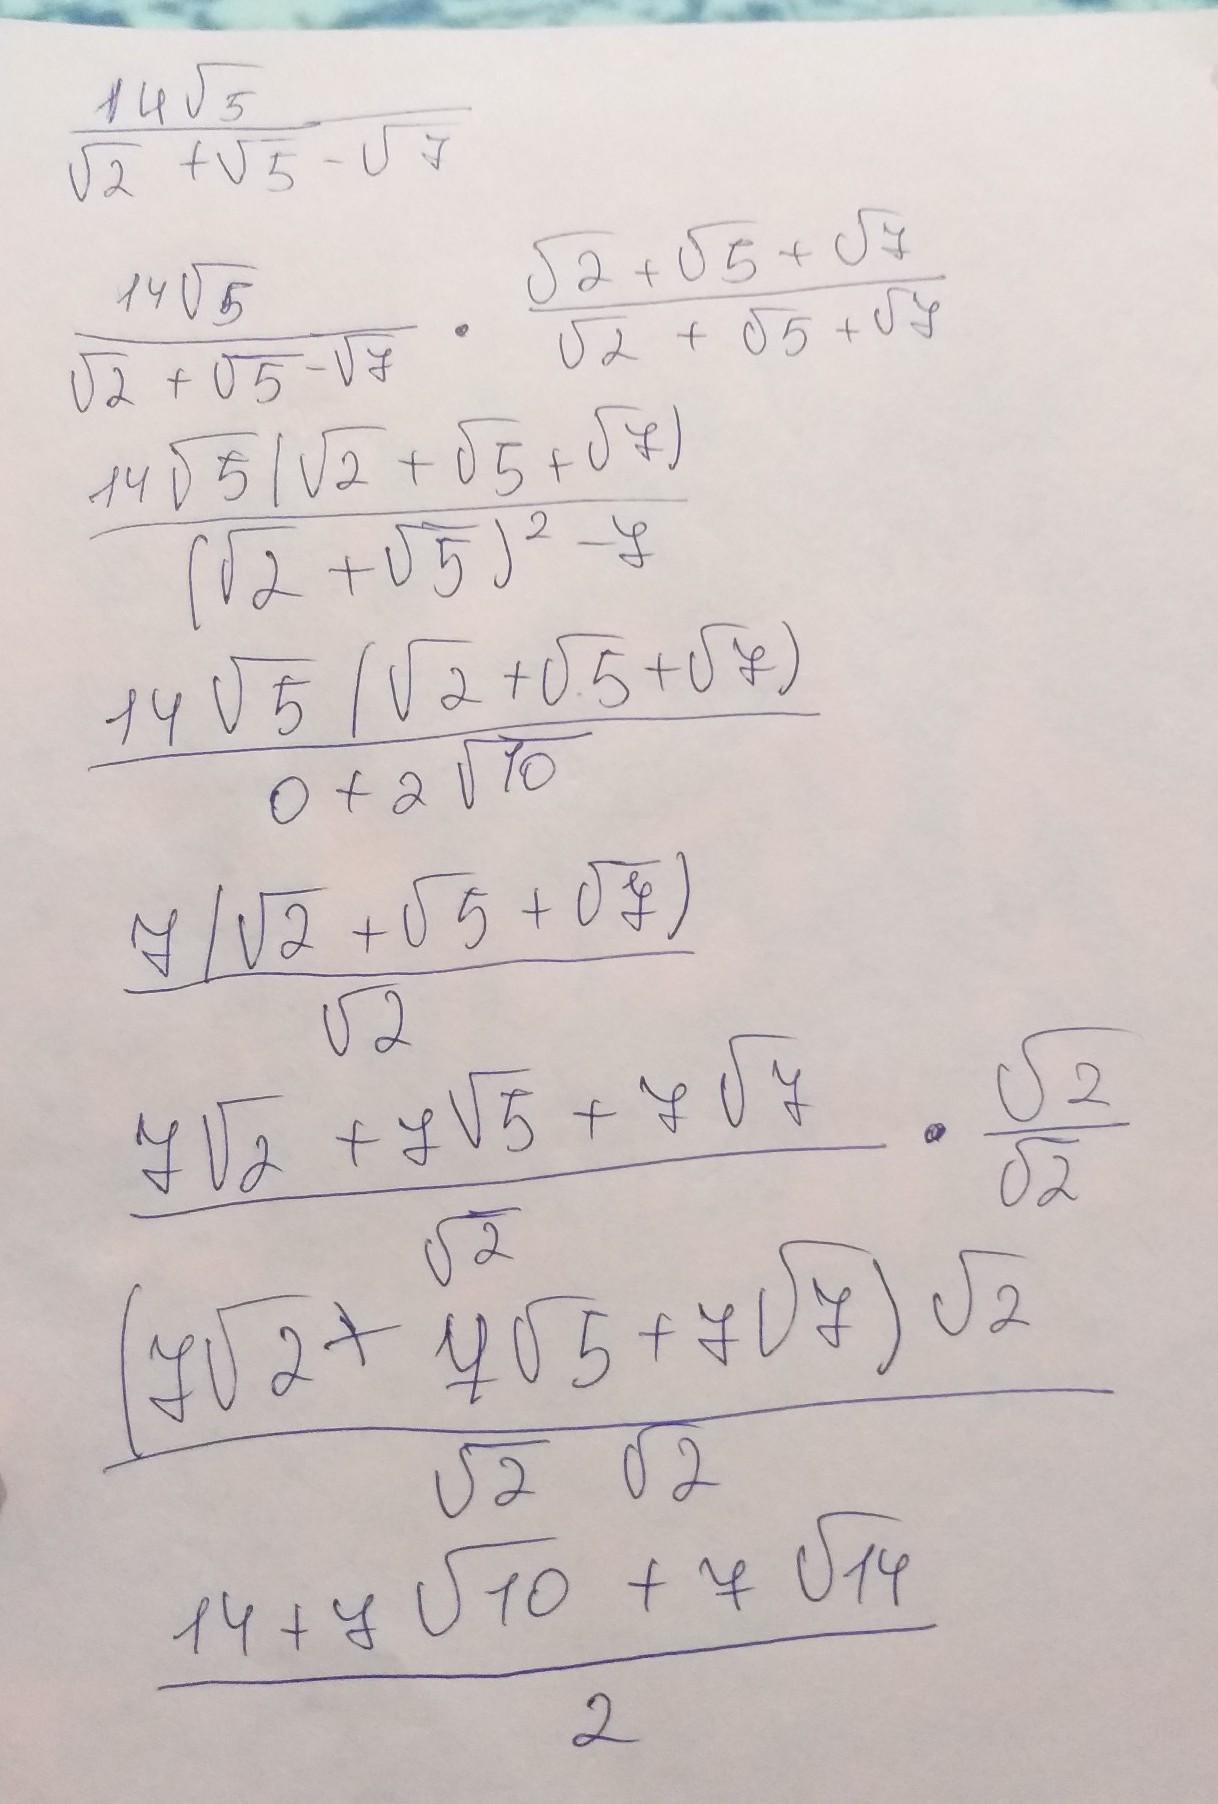 14√5
√2 + √5 - √7
14√5 / (√2 + √5 - √7) · (√2 + √5 + √7) / (√2 + √5 + √7)
14√5(√2 + √5 + √7)
(√2 + √5)² - 7
14√5(√2 + √5 + √7)
0 + 2√10
7(√2 + √5 + √7)
√2
(7√2 + 7√5 + 7√7) / √2 · √2 / √2
(7√2 + 7√5 + 7√7)√2
√2 √2
14 + 7√10 + 7√14
2